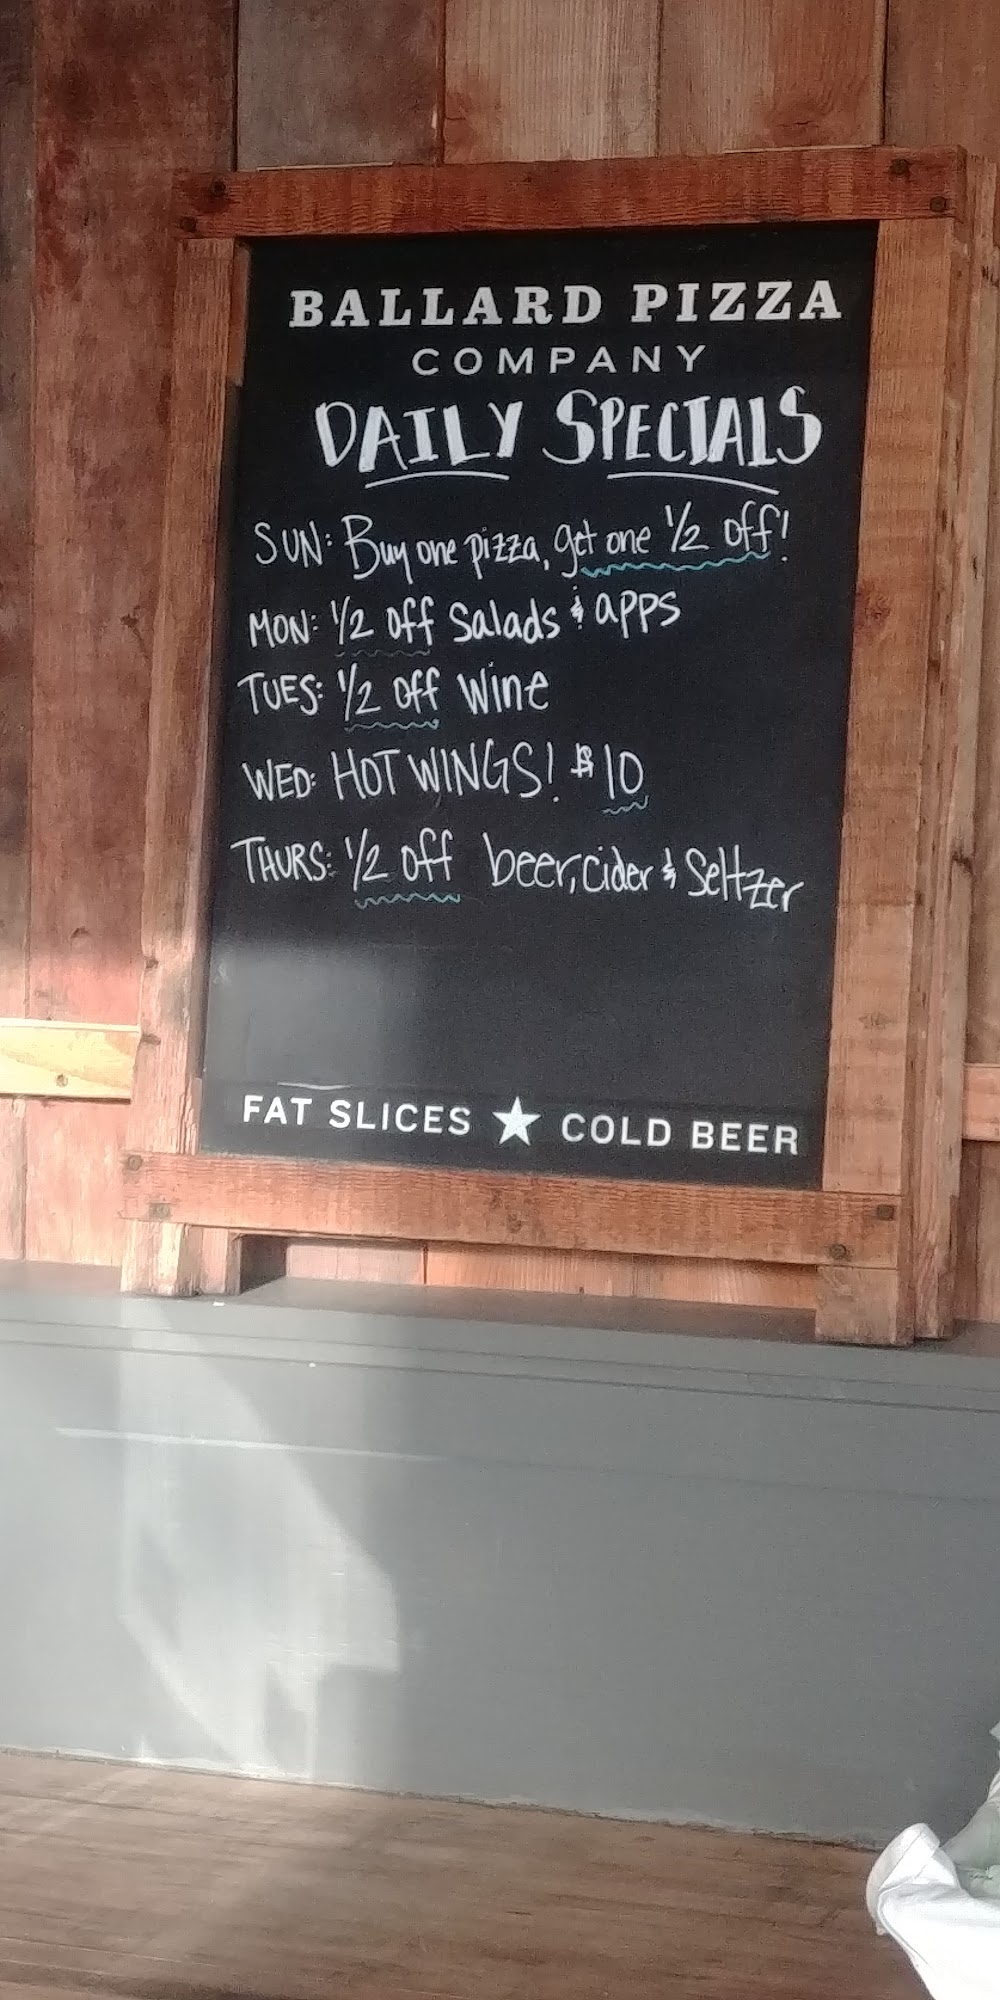 BALLARD PIZZA
COMPANY
DAILY SPECIALS
SUN: Buy one pizza, get one 1/2 off!
MON: 1/2 off Salads & apps
TUES: 1/2 off Wine
WED: HOT WINGS! $10
THURS: 1/2 off beer, cider & Seltzer
FAT SLICES ★ COLD BEER